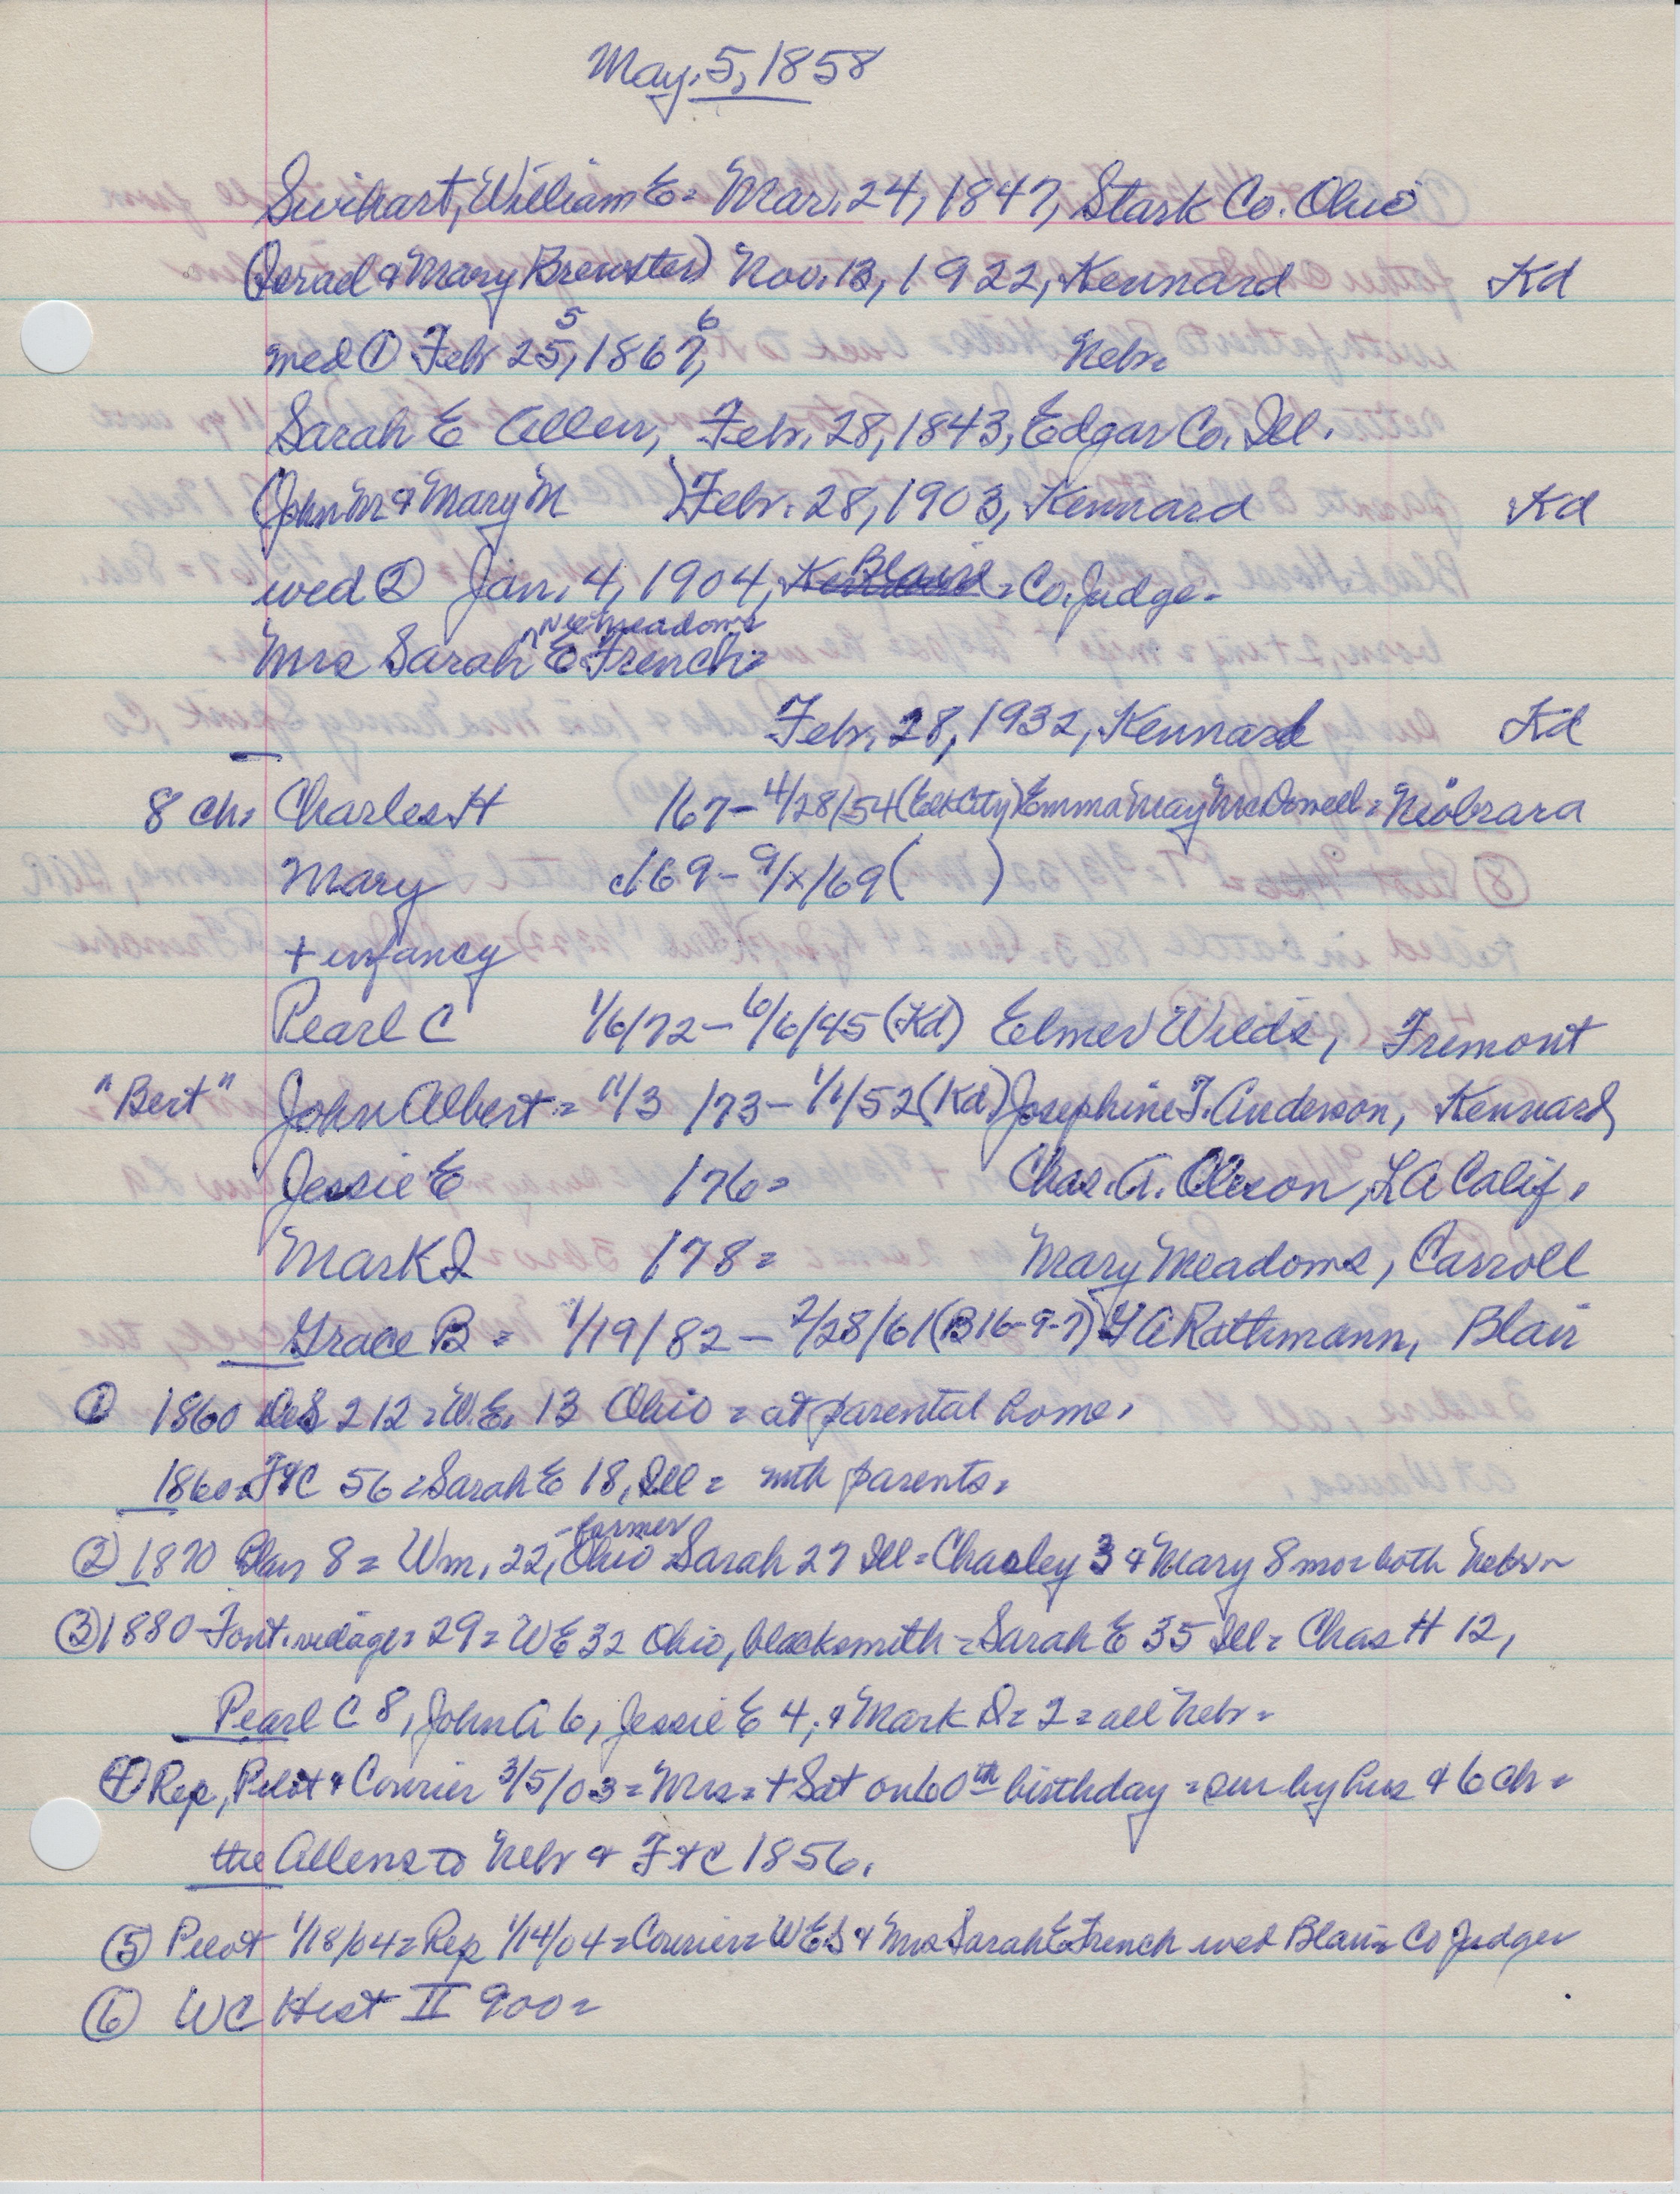 May. 5, 1858
Swihart, William E = Mar. 24, 1847, Stark Co. Ohio
(Israel & Mary Brewster) Nov. 13, 1922, Kennard Kd
5 6
wed ① Feb 25, 1867, Nebr=
Sarah E Allen, Feb. 28, 1843, Edgar Co. Ill.
(John M & Mary M ) Feb. 28, 1903, Kennard Kd
wed ② Jan. 4, 1904, Kennard Blair = Co. Judge =
nee Meadows
Mrs Sarah ^ E French =
Feb. 28, 1932, Kennard Kd
8 ch= Charles H /67 - 4/28/54 (Elk City) Emma May McDowell = Niobrara
Mary /69 - 9/x/69 ( )
+ infancy
Pearl C 1/6/72 - 6/6/45 (Kd) Elmer Wilds, Fremont
"Bert" John Albert = 11/3 /73 - 1/1/52 (Kd) Josephine T. Anderson, Kennard
Jessie E /76 = Chas. A. Oleson, LA Calif.
Mark I /78 = Mary Meadows, Carroll
Grace B = 1/19/82 - 2/28/61 (B16-9-7) G A Rathmann, Blair
① 1860 DeS 212 = W.E. 13 Ohio = at parental home.
1860 = Ft C 56 = Sarah E 18, Ill = with parents =
② 1870 Blair 8 = Wm. 22, Ohio - farmer = Sarah 27 Ill = Charley 3 & Mary 8 mo = both Nebr ~
③ 1880 Font. village = 29 = W E 32 Ohio, blacksmith = Sarah E 35 Ill = Chas H 12,
Pearl C 8, John A 6, Jessie E 4, & Mark D = 2 = all Nebr =
④ Rep, Pilot & Courier 3/5/03 = Mrs = + Sat on 60th birthday = sur by hus & 6 ch =
the Allens to Nebr & Ft C 1856.
⑤ Pilot 1/18/04 = Rep 1/14/04 = Courier = W E S & Mrs Sarah E French wed Blair = Co Judge =
⑥ WC Hist II 900 =